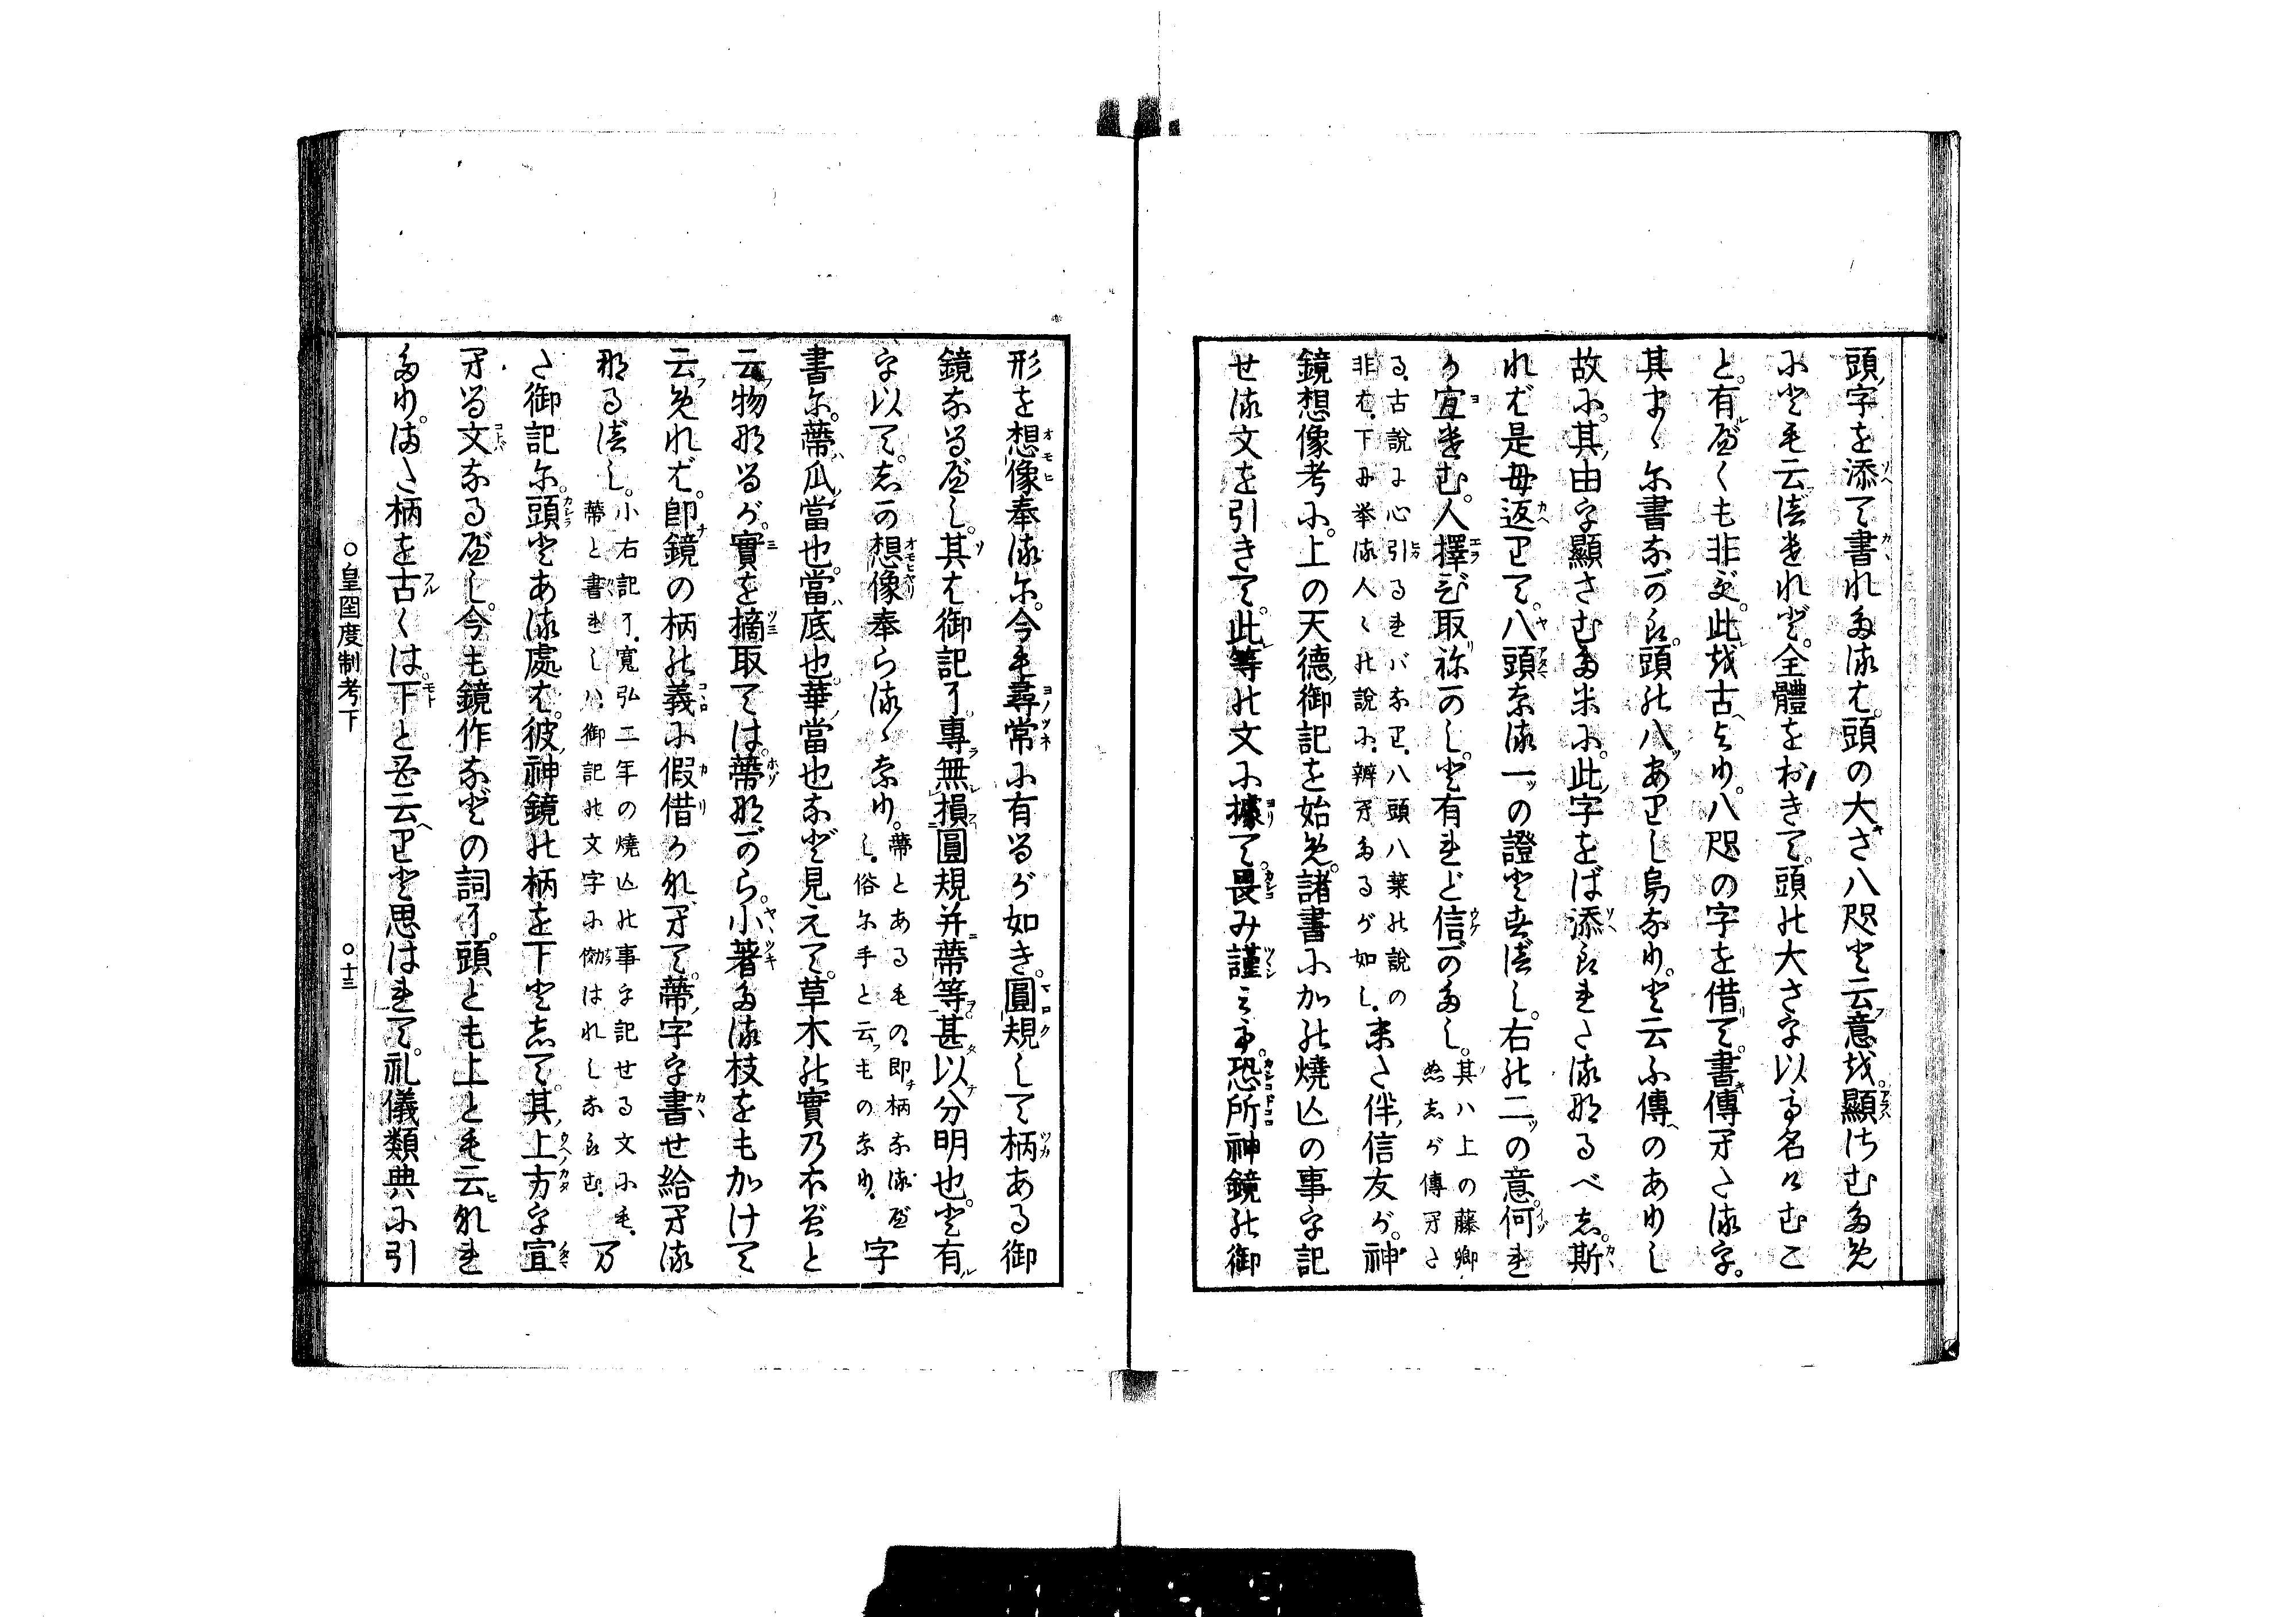 頭字を添て書れたるは頭の大さ八咫と云意を顯はむため
にとも云べけれど全體をおきて頭の大さを以て名けむこ
と有べくも非ず此を古より八咫の字を借て書傳たる字
其まゝに書ながら頭の八あわし烏なりと云ふ傳のありし
故に其由を顯さむために此字をば添られたるなるべし斯
れば是毎返りて八頭なる一の證とすべし右の二の意何れ
か宜けむ人擇び取ねかしと有れど信がたし其ハ上の藤卿
ぬしが傳へた
る古説に心引るればなり八頭八葉の説の
非は下に挙る人々の説に辨へたるが如しまた伴信友が神
鏡想像考に上の天徳御記を始め諸書に加の燒亡の事を記
せる文を引きて此等の文に據て畏み謹みて恐所神鏡の御
形を想像奉るに今も尋常に有るが如き圓規して柄ある御
鏡なるべし其は御記に專無損圓規并蔕等甚以分明也と有
を以てしか想像奉らるゝなり蔕とあるもの即柄なるべ
し俗に手と云ものなり字
書に蔕瓜當也當底也華當也など見えて草木の實乃本をと
云物なるが實を摘取ては蔕ながら小著たる枝をもかけて
云めれば卽鏡の柄の義に假借られて蔕字を書せ給へる
なるべし小右記に寛弘二年の燒亡の事を記せる文にも
蔕と書れしハ御記の文字に傚はれしならむ万
た御記に頭とある處は彼神鏡の柄を下として其上方を宣
へる文なるべし今も鏡作などの詞に頭とも上とも云なれ
たりまた柄を古くは下とぞ云へりと思はれて礼儀類典に引
皇国度制考下
十三